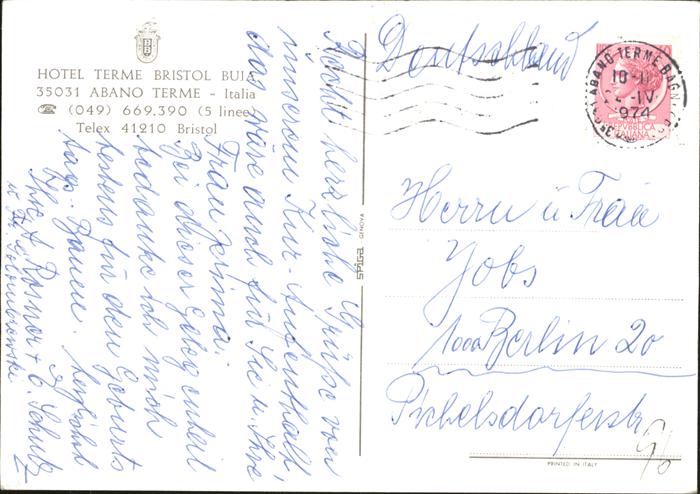 HOTEL TERME BRISTOL BUJA
35031 ABANO TERME - Italia
☎ (049) 669.390 (5 linee)
Telex 41210 Bristol
Recht herzliche Grüße von
unserem Kur-Aufenthalt,
das wäre auch für Sie u. Ihre
Frau prima.
Bei dieser Gelegenheit
bedanke ich mich
bestens für den Geburts
tags-
Ihre A. Rosner + C. Schulz
SPIGA GENOVA
Deutschland
ABANO TERME BAGNI
10-11
IV
1974
REPUBBLICA
ITALIANA
Herrn u Frau
Jobs
1000 Berlin 20
Pichelsdorferstr
PRINTED IN ITALY